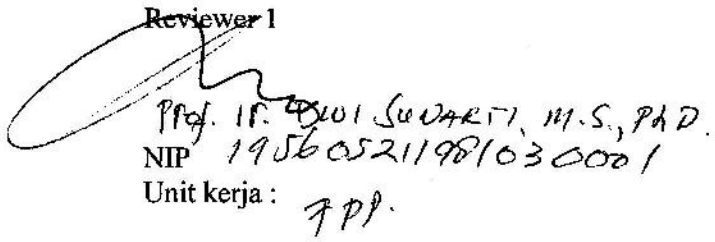 Reviewer 1
Prof. Ir. Dwi Sunarti, M.S., PhD.
NIP 195605211981030001
Unit kerja : FPP.